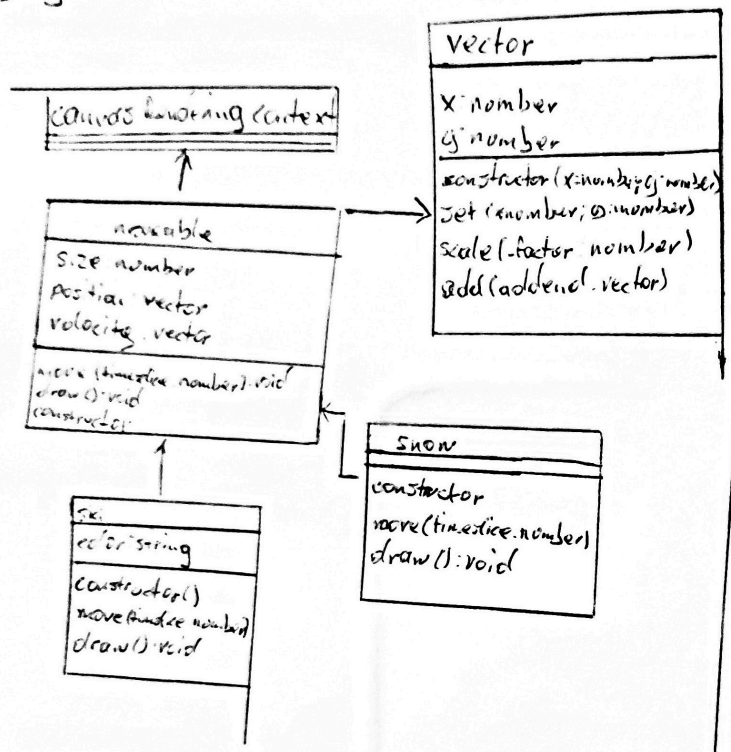 vector
x:number
y:number
constructor(x:number; y:number)
set(x:number; y:number)
scale(factor:number)
add(addend:vector)
canvas Rendering Context
moveable
size:number
position:vector
velocity:vector
move(timeslice:number):void
draw():void
constructor
snow
constructor
move(timeslice:number)
draw():void
ski
color:string
constructor()
move(timeslice:number)
draw():void